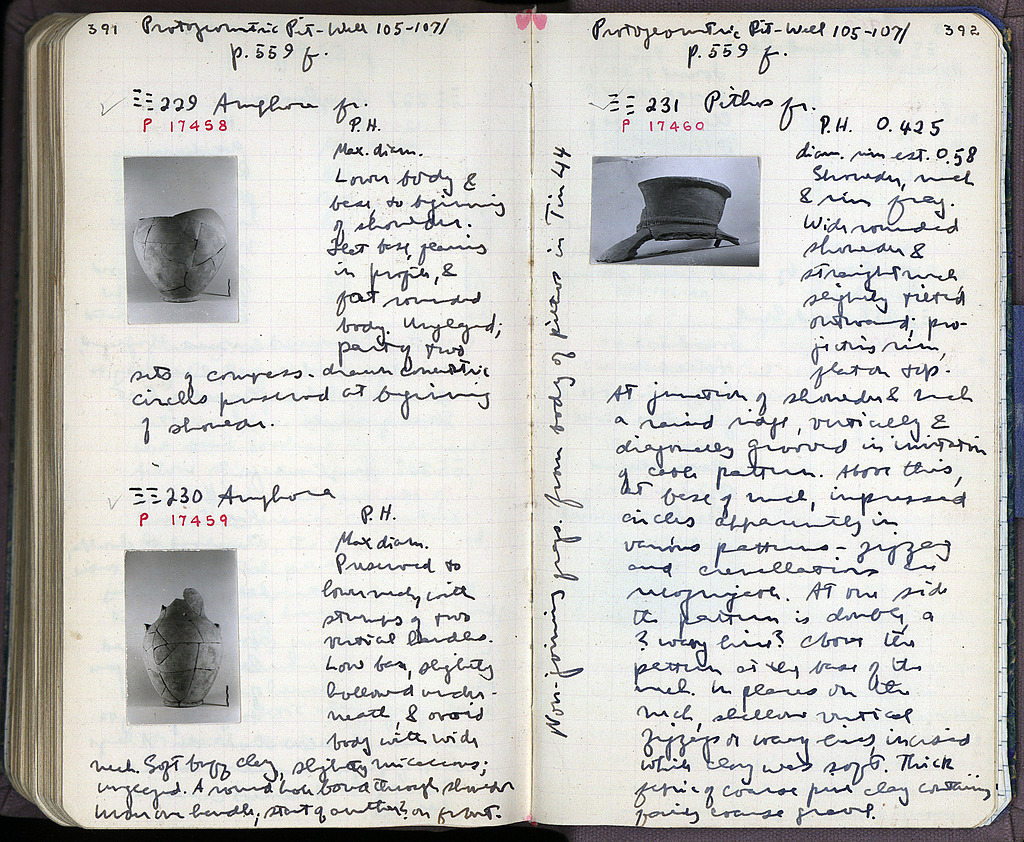 391 Protogeometric Pit-Well 105-107/
p. 559 f.
ΞΞ 229 Amphora fr.
P 17458
P.H.
Max. diam.
Lower body &
base to beginning
of shoulder.
Flat base, flaring
in profile, &
fat rounded
body. Unglazed;
part of two
sets of compass-drawn concentric
circles preserved at beginning
of shoulder.
ΞΞ 230 Amphora
P 17459
P.H.
Max diam.
Preserved to
lower neck, with
stumps of two
vertical handles.
Low base, slightly
hollowed under-
neath, & ovoid
body with wide
neck. Soft buff clay, slightly micaceous;
unglazed. A round hole bored through shoulder
under one handle; start of another? on front.
Non-joining frags. from body of pithos in Tin 44
Protogeometric Pit-Well 105-107/ 392
p. 559 f.
ΞΞ 231 Pithos fr.
P 17460
P.H. 0.425
diam. rim est. 0.58
Shoulder, neck
& rim frag.
Wide rounded
shoulder &
straight neck
slightly tilted
outward; pro-
jecting rim,
flat on top.
At junction of shoulder & neck
a raised ridge, vertically &
diagonally grooved in imitation
of cable pattern. Above this,
at base of neck, impressed
circles apparently in
various patterns - zigzag
and crenellations are
recognizable. At one side
the pattern is double, a
? wavy line? above the
pattern at the base of the
neck. In places on the
neck, shallow vertical
zigzags or wavy lines, incised
while clay was soft. Thick
fabric of coarse red clay containing
fairly coarse gravel.